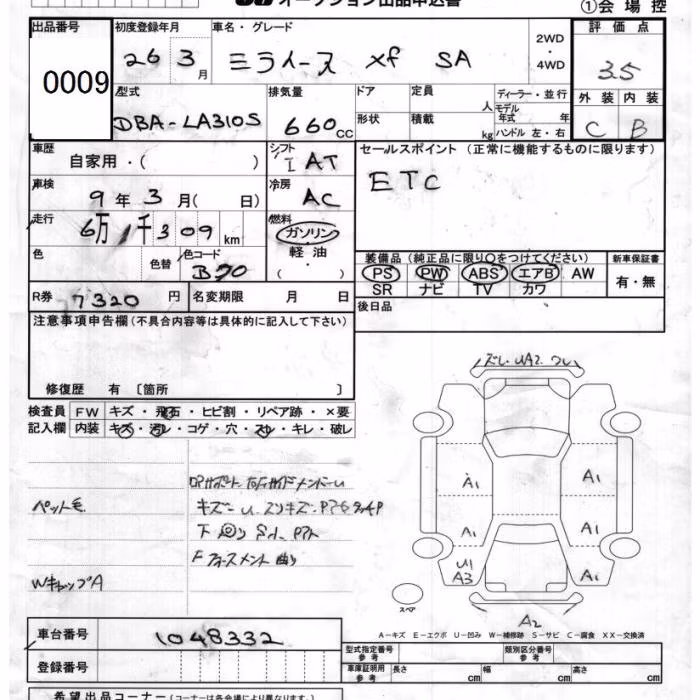 オークション出品申込書
①会場控
出品番号 初度登録年月 車名・グレード 評価点
0009 26 3月 ミライース Xf SA 2WD・4WD 3.5
型式 排気量 ドア 定員 人 ディーラー・並行 外装 内装
DBA-LA310S 660cc 形状 積載 kg モデル年式 年 ハンドル 左・右 C B
車歴 自家用・( ) シフト I AT セールスポイント (正常に機能するものに限ります)
車検 9年3月( 日) 冷房 AC ETC
走行 6万1千309km 燃料 ガソリン
軽油
( )
色 色替 色コード B70
装備品 (純正品に限り○をつけてください) 新車保証書
PS PW ABS エアB AW 有・無
SR ナビ TV カワ
R券 7320円 名変期限 月 日 後日品
注意事項申告欄 (不具合内容等は具体的に記入して下さい)
修復歴 有 〔箇所 〕
検査員 FW キズ・飛石・ヒビ割・リペア跡・×要
記入欄 内装 キズ・汚レ・コゲ・穴・スレ・キレ・破レ
ズレ UA2 ワレ
ロアサポート 右Fサイドメンバーu
ペット毛 キズ
下
F フォースメント 曲り
WキャップA
A1 A1
A1 A1
U1
A3 A1
スペア A2
A-キズ E-エクボ U-凹み W-補修跡 S-サビ C-腐食 XX-交換済
車台番号 1048332
型式指定番号 参考 類別区分番号 参考
登録番号
車庫証明用 参考 長さ cm 幅 cm 高さ cm
希望出品コーナー (コーナーは各会場により異なります)